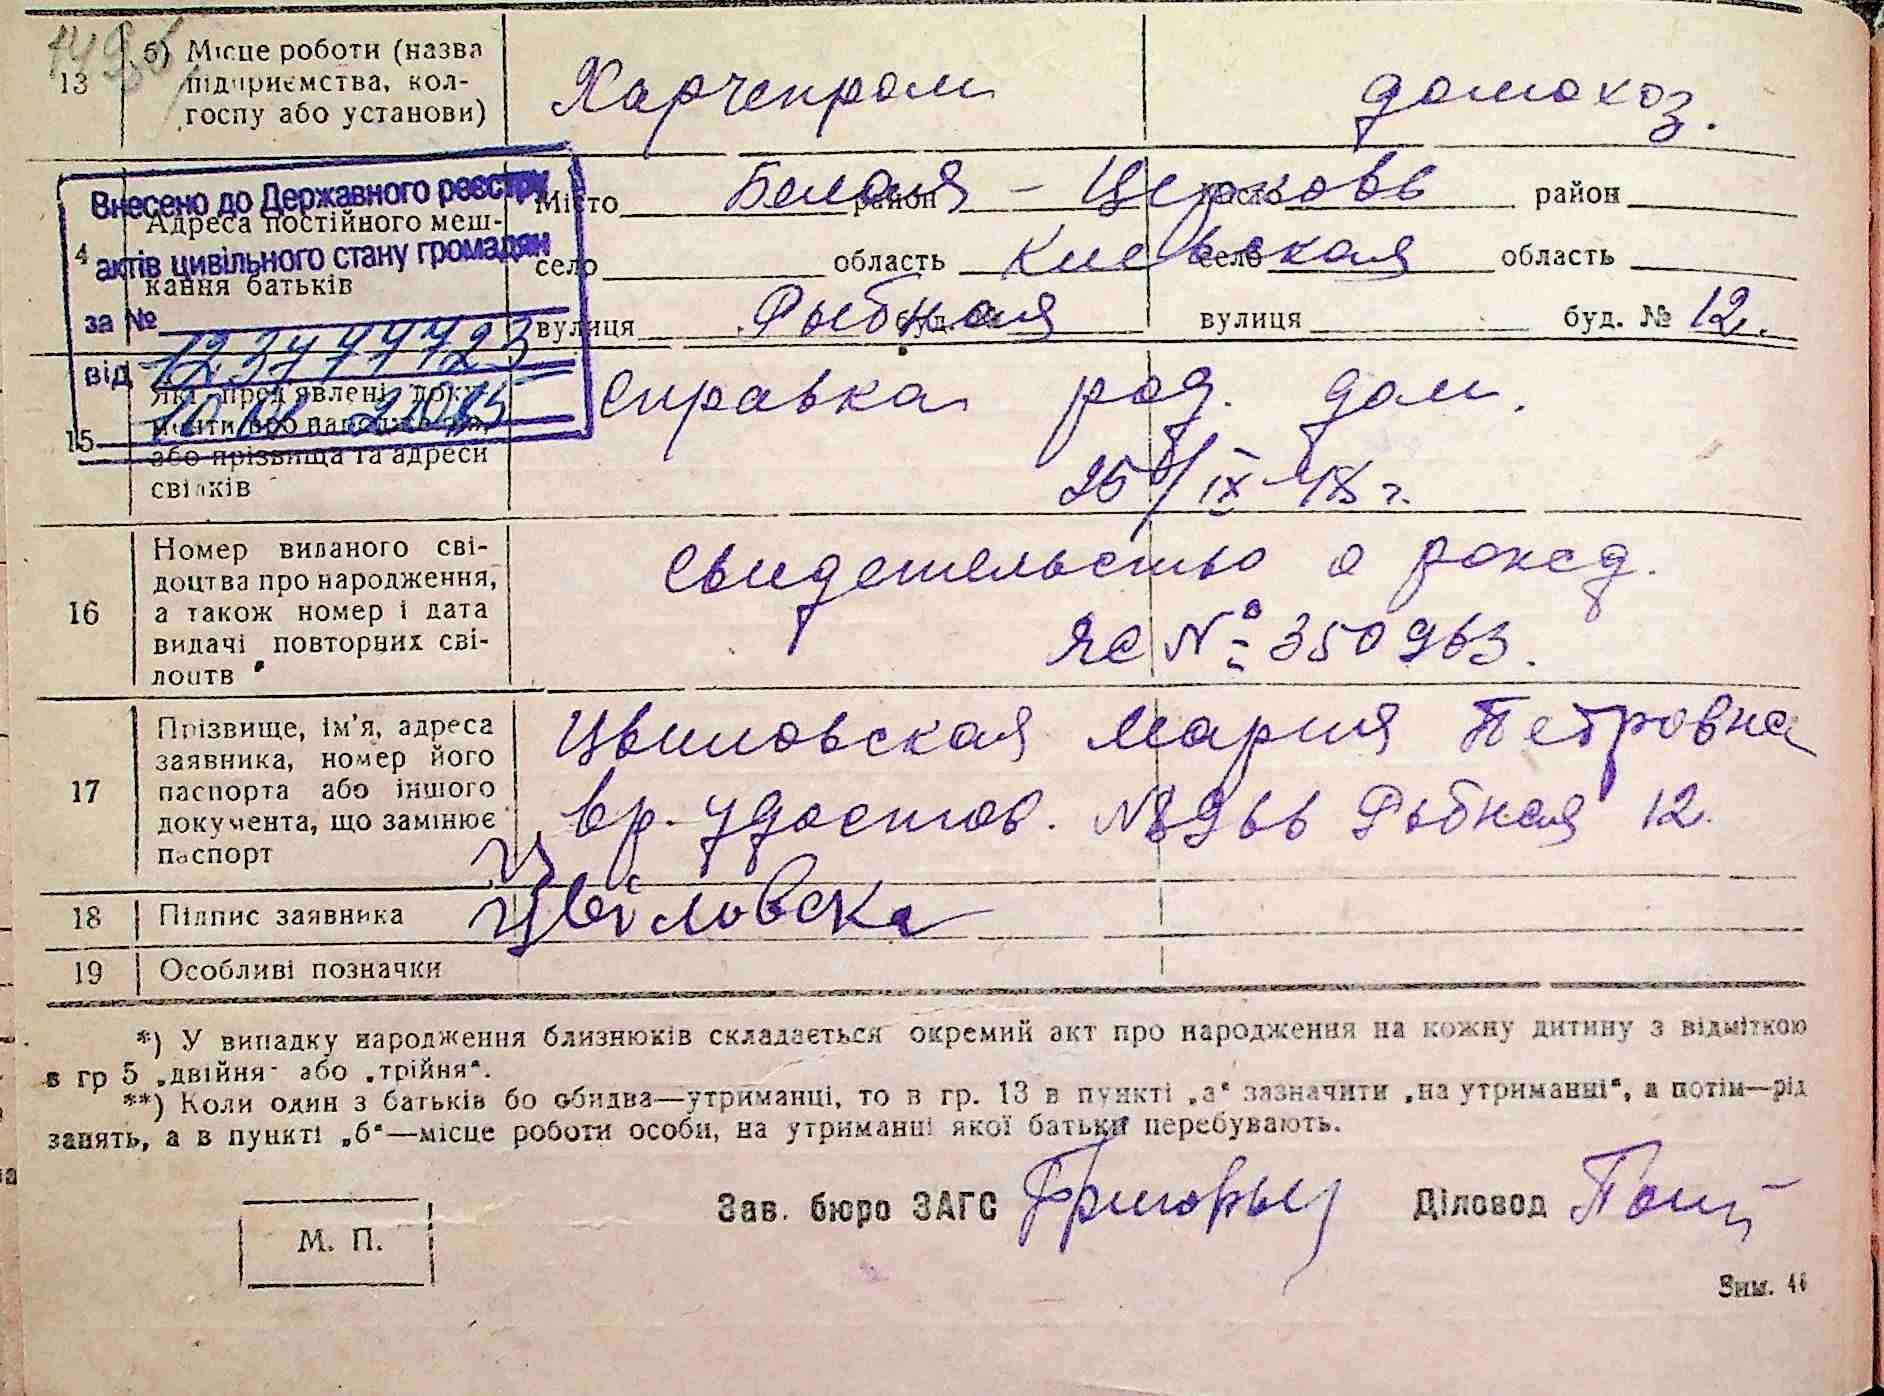 13 б) Місце роботи (назва
підприємства, кол-
госпу або установи)
Харчепром домохоз.
Внесено до Державного реєстру
актів цивільного стану громадян
за №
від
Адреса постійного меш-
кання батьків
Місто Белая - Церковь район місто район
село область Киевская село область
вулиця Рыбная буд. вулиця буд. № 12.
15 Які пред'явлені доку-
менти про народження,
або прізвища та адреси
свідків
Справка род. дом.
25/IX-48 г.
16 Номер виданого сві-
доцтва про народження,
а також номер і дата
видачі повторних сві-
доцтв
Свидетельство о рожд.
ЯС № 350963.
17 Прізвище, ім'я, адреса
заявника, номер його
паспорта або іншого
документа, що замінює
паспорт
Цвиловская Мария Петровна
вр. удостов. № 8966 Рыбная 12.
18 Підпис заявника Цвіловска
19 Особливі позначки
*) У випадку народження близнюків складається окремий акт про народження на кожну дитину з відміткою
в гр 5 „двійня" або „трійня".
**) Коли один з батьків бо обидва—утриманці, то в гр. 13 в пункті „а" зазначити „на утриманні", а потім—рід
занять, а в пункті „б"—місце роботи особи, на утриманні якої батьки перебувають.
Зав. бюро ЗАГС Діловод
М. П.